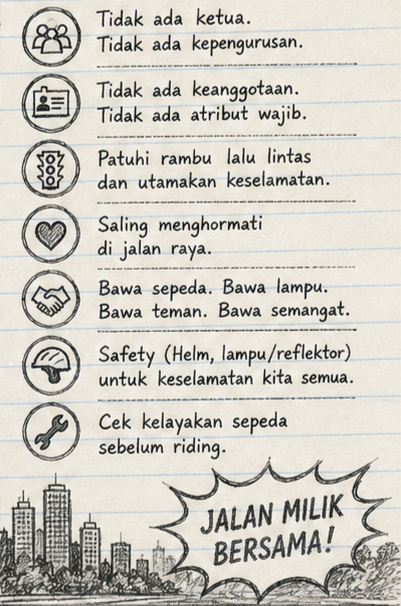 Tidak ada ketua.
Tidak ada kepengurusan.
Tidak ada keanggotaan.
Tidak ada atribut wajib.
Patuhi rambu lalu lintas
dan utamakan keselamatan.
Saling menghormati
di jalan raya.
Bawa sepeda. Bawa lampu.
Bawa teman. Bawa semangat.
Safety (Helm, lampu/reflektor)
untuk keselamatan kita semua.
Cek kelayakan sepeda
sebelum riding.
JALAN MILIK
BERSAMA!